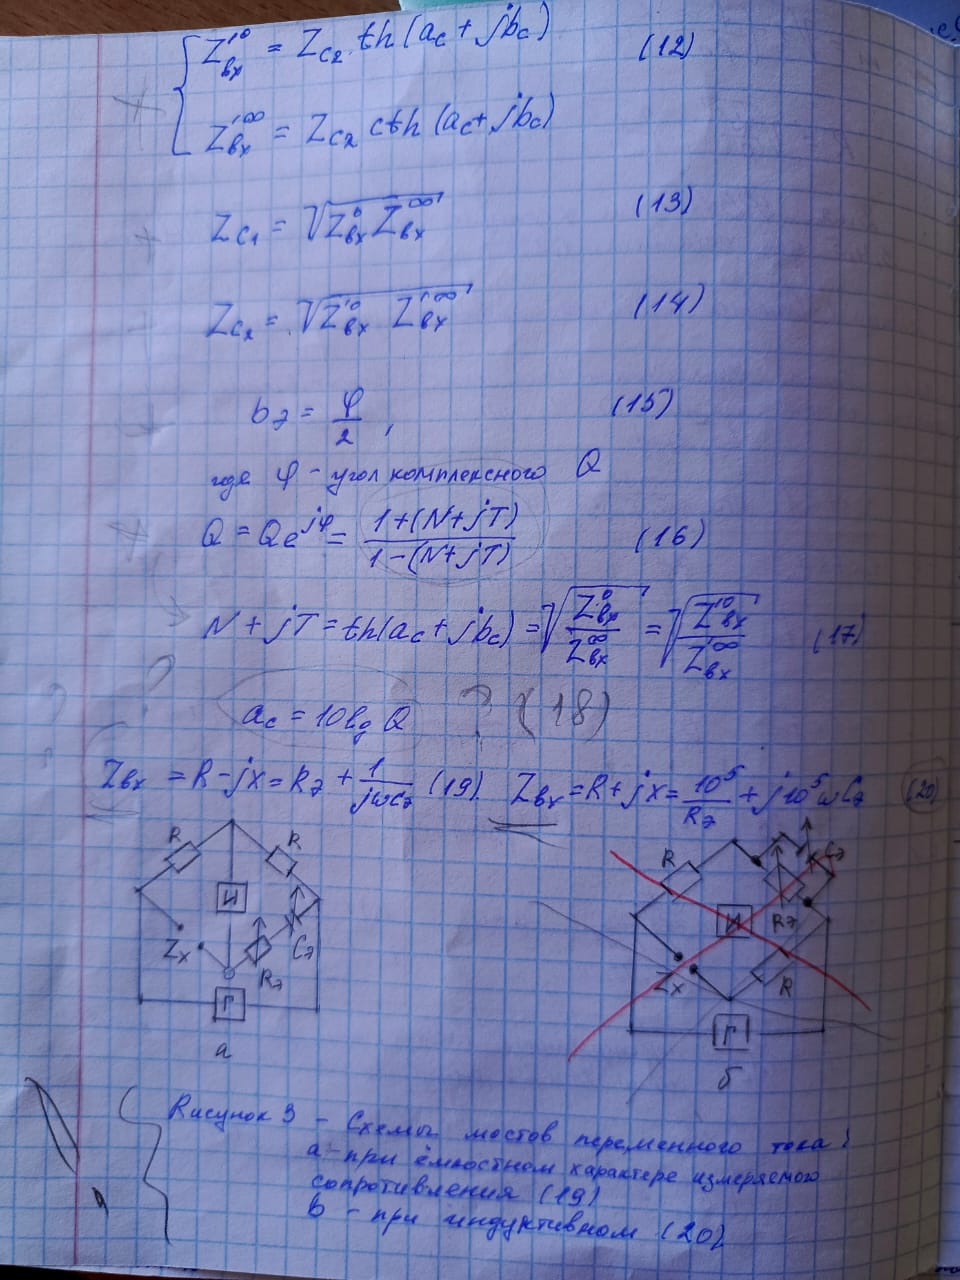 Z'⁰вх = Zc₂ th(ac + jbc) (12)
Z'^∞вх = Zc₂ cth(ac + jbc)
Zc₁ = √(Z⁰вх Z^∞вх) (13)
Zc₂ = √(Z'⁰вх Z'^∞вх) (14)
bэ = φ/2 , (15)
где φ - угол комплексного Q
Q = Qe^jφ = (1+(N+jT))/(1-(N+jT)) (16)
N + jT = th(ac + jbc) = √(Z⁰вх/Z^∞вх) = √(Z'⁰вх/Z'^∞вх) (17)
ac = 10lg Q ? (18)
Zвх = R - jx = Rэ + 1/(jωCэ) (19). Zвх = R + jx = 10⁵/Rэ + j10⁵ωCэ (20)
R R R Cэ
И И Rэ
Zx Rэ Cэ Zx R
Г Г
а б
Рисунок 3 - Схемы мостов переменного тока:
а - при ёмкостном характере измеряемого
сопротивления (19)
b - при индуктивном (20)